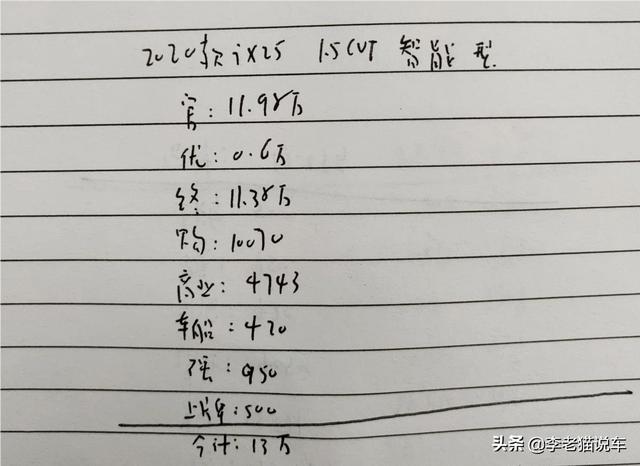 2020款ix25 1.5CVT 智能型
官:11.98万
优:0.6万
终:11.38万
购:10070
商业:4743
车船:420
强:950
上牌:500
合计:13万
头条 @李老猫说车